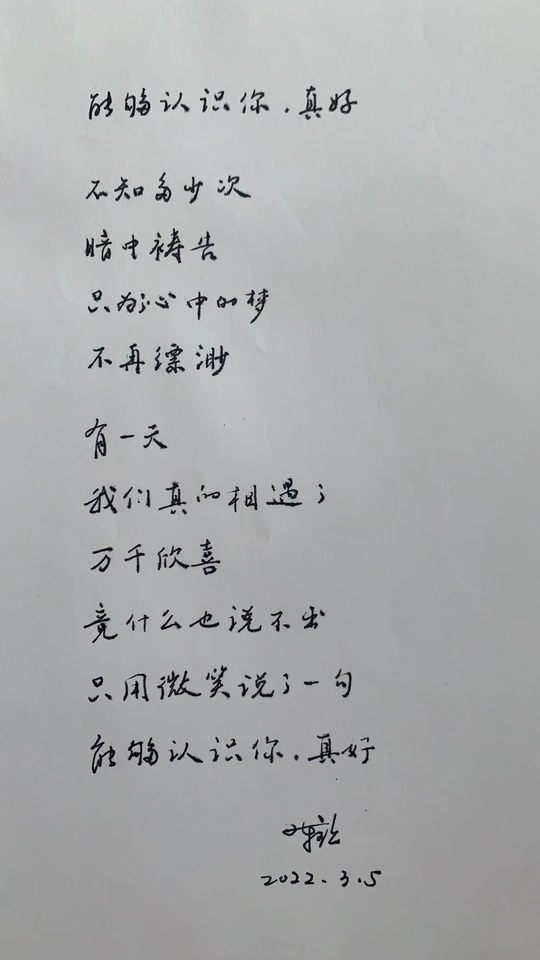 能够认识你，真好
不知多少次
暗中祷告
只为心中的梦
不再缥渺
有一天
我们真的相遇了
万千欣喜
竟什么也说不出
只用微笑说了一句
能够认识你，真好
2022.3.5